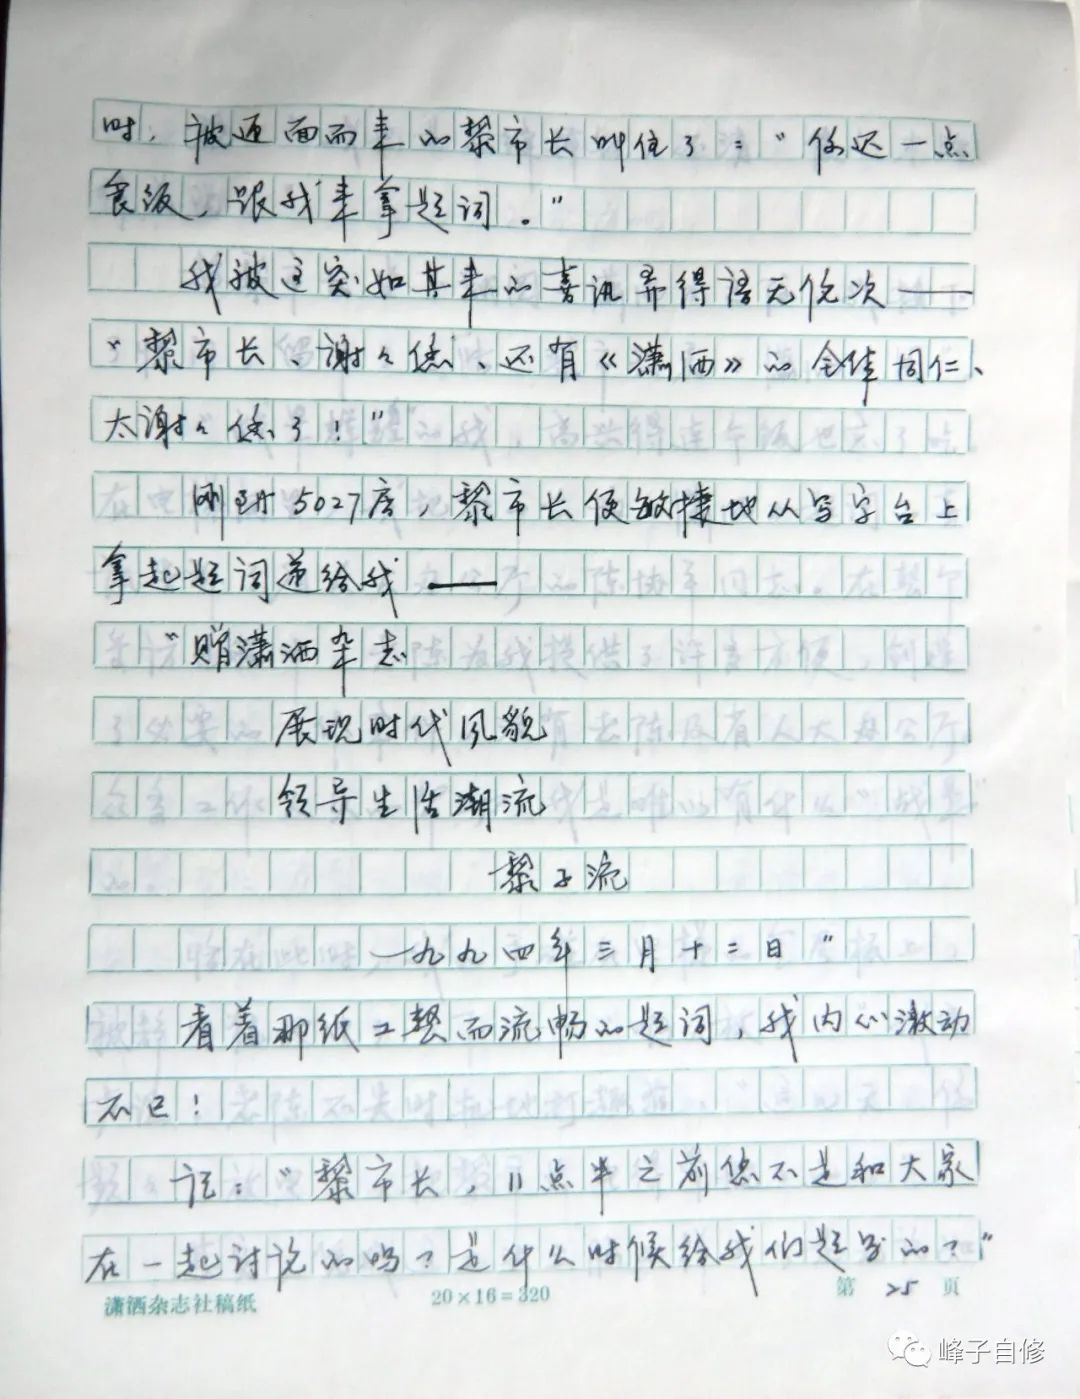 时，被迎面而来的黎市长叫住了："你迟一点
食饭，跟我来拿题词。"
我被这突如其来的喜讯弄得语无伦次——
"黎市长、谢々您、还有《潇洒》的全体同仁、
太谢々您了！"
刚到5027房，黎市长便敏捷地从写字台上
拿起题词递给我——
"赠潇洒杂志
展现时代风貌
领导生活潮流
黎子流
一九九四年三月十二日"
看着那纸工整而流畅的题词，我内心激动
不已！
记："黎市长，11点半之前您不是和大家
在一起讨论的吗？是什么时候给我们题写的？"
潇洒杂志社稿纸 20×16=320 第 25 页
峰子自修